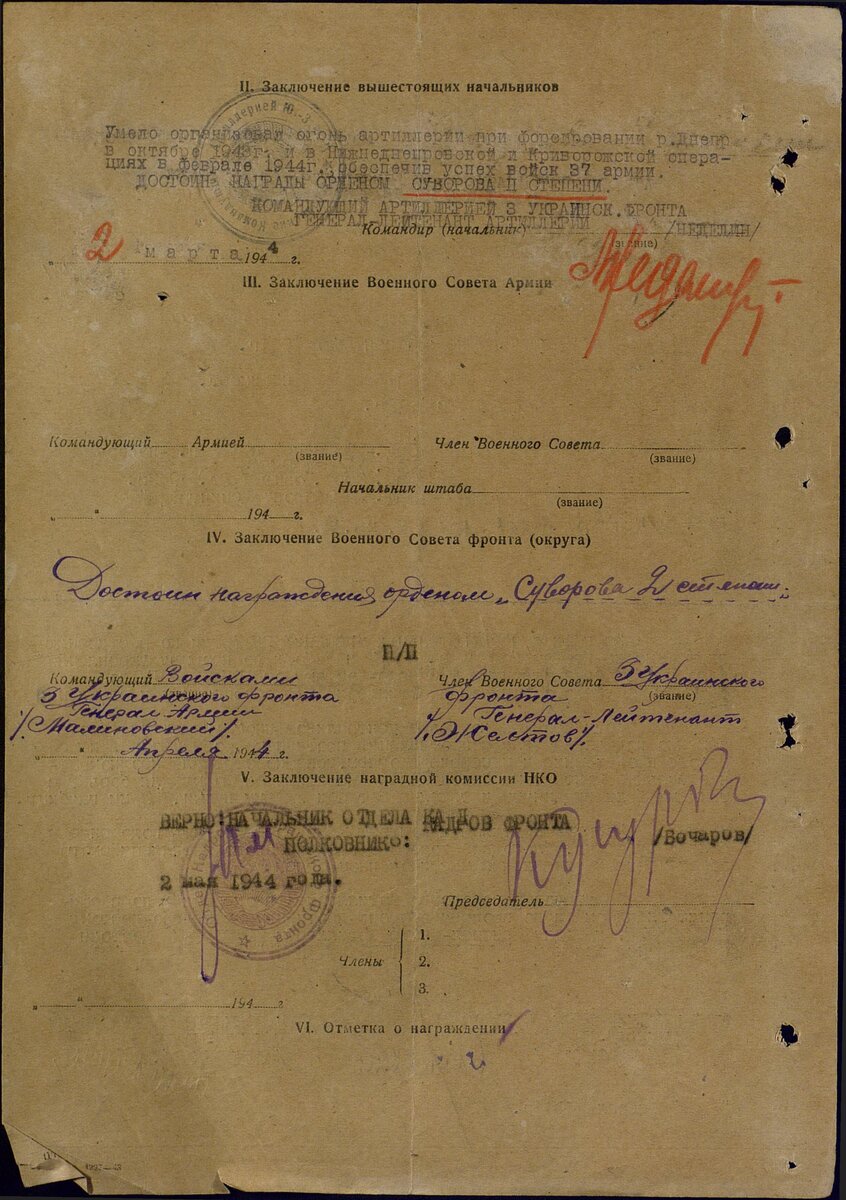 II. Заключение вышестоящих начальников
Умело организовал огонь артиллерии при форсировании р.Днепр
в октябре 1943г. и в Нижнеднепровской и Криворожской опера-
циях в феврале 1944г. обеспечив успех войск 37 армии.
ДОСТОИН НАГРАДЫ ОРДЕНОМ СУВОРОВА П СТЕПЕНИ.
КОМАНДУЮЩИЙ АРТИЛЛЕРИЕЙ 3 УКРАИНСК. ФРОНТА
ГЕНЕРАЛ-ЛЕЙТЕНАНТ АРТИЛЛЕРИИ
Командир (начальник) /НЕДЕЛИН/
(звание)
2 марта 1944 г.
III. Заключение Военного Совета Армии
Командующий Армией Член Военного Совета
(звание) (звание)
Начальник штаба
(звание)
„ “ 194 г.
IV. Заключение Военного Совета фронта (округа)
Достоин награждения орденом „Суворова 2й степени.
П/П
Командующий Войсками Член Военного Совета 3 Украинского
3 Украинского фронта фронта (звание)
Генерал Армии Генерал-Лейтенант
/Малиновский/. /Желтов/.
„ “ Апреля 1944 г.
V. Заключение наградной комиссии НКО
ВЕРНО: НАЧАЛЬНИК ОТДЕЛА КАДРОВ ФРОНТА
ПОЛКОВНИК: /Бочаров/
2 мая 1944 года.
Председатель
Члены
1.
2.
3.
„ “ 194 г.
VI. Отметка о награждении